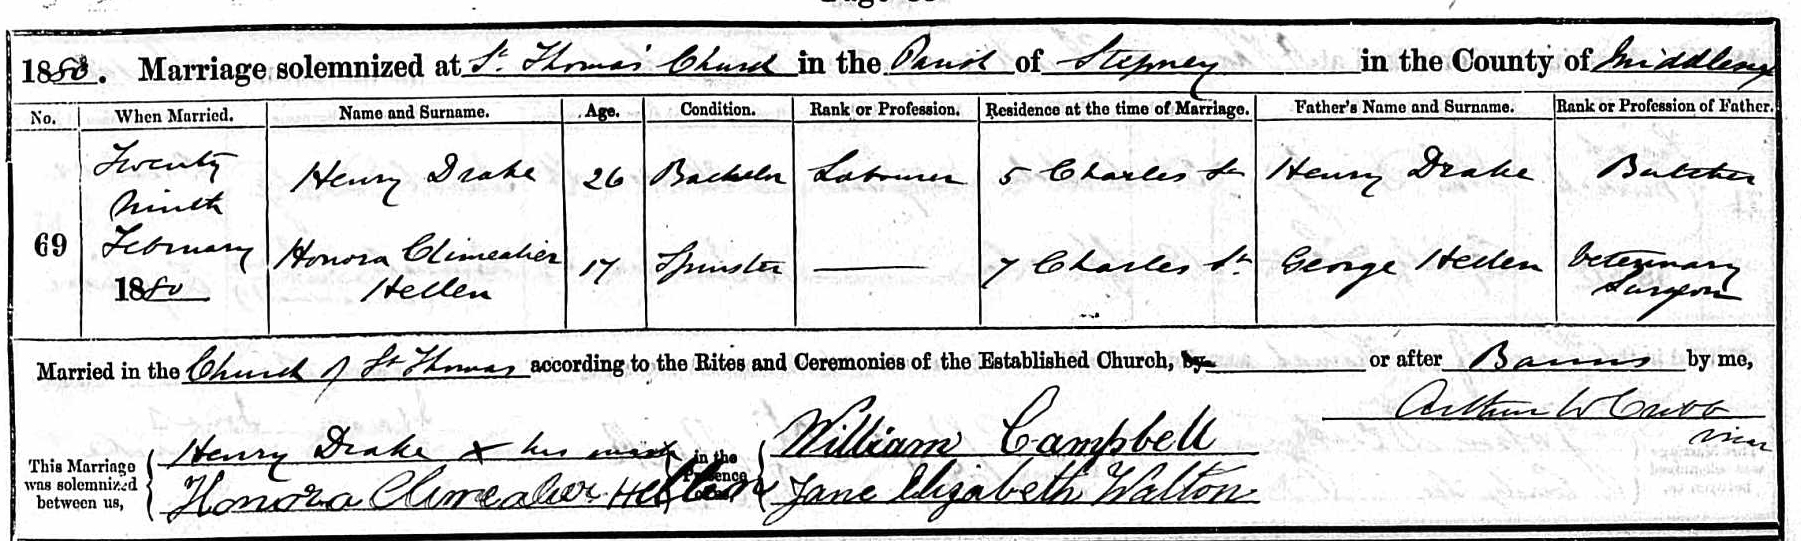 1880. Marriage solemnized at St. Thomas' Church in the Parish of Stepney in the County of Middlesex
No. When Married. Name and Surname. Age. Condition. Rank or Profession. Residence at the time of Marriage. Father's Name and Surname. Rank or Profession of Father.
69 Twenty Ninth February 1880
Henry Drake 26 Bachelor Labourer 5 Charles St. Henry Drake Butcher
Honora Climealier Hellen 17 Spinster — 7 Charles St. George Hellen Veterinary Surgeon
Married in the Church of St Thomas according to the Rites and Ceremonies of the Established Church, by or after Banns by me,
Arthur W Cribb
Vicar
This Marriage was solemnized between us,
Henry Drake x his mark
Honora Climealier Hellen
in the Presence of us,
William Campbell
Jane Elizabeth Walton